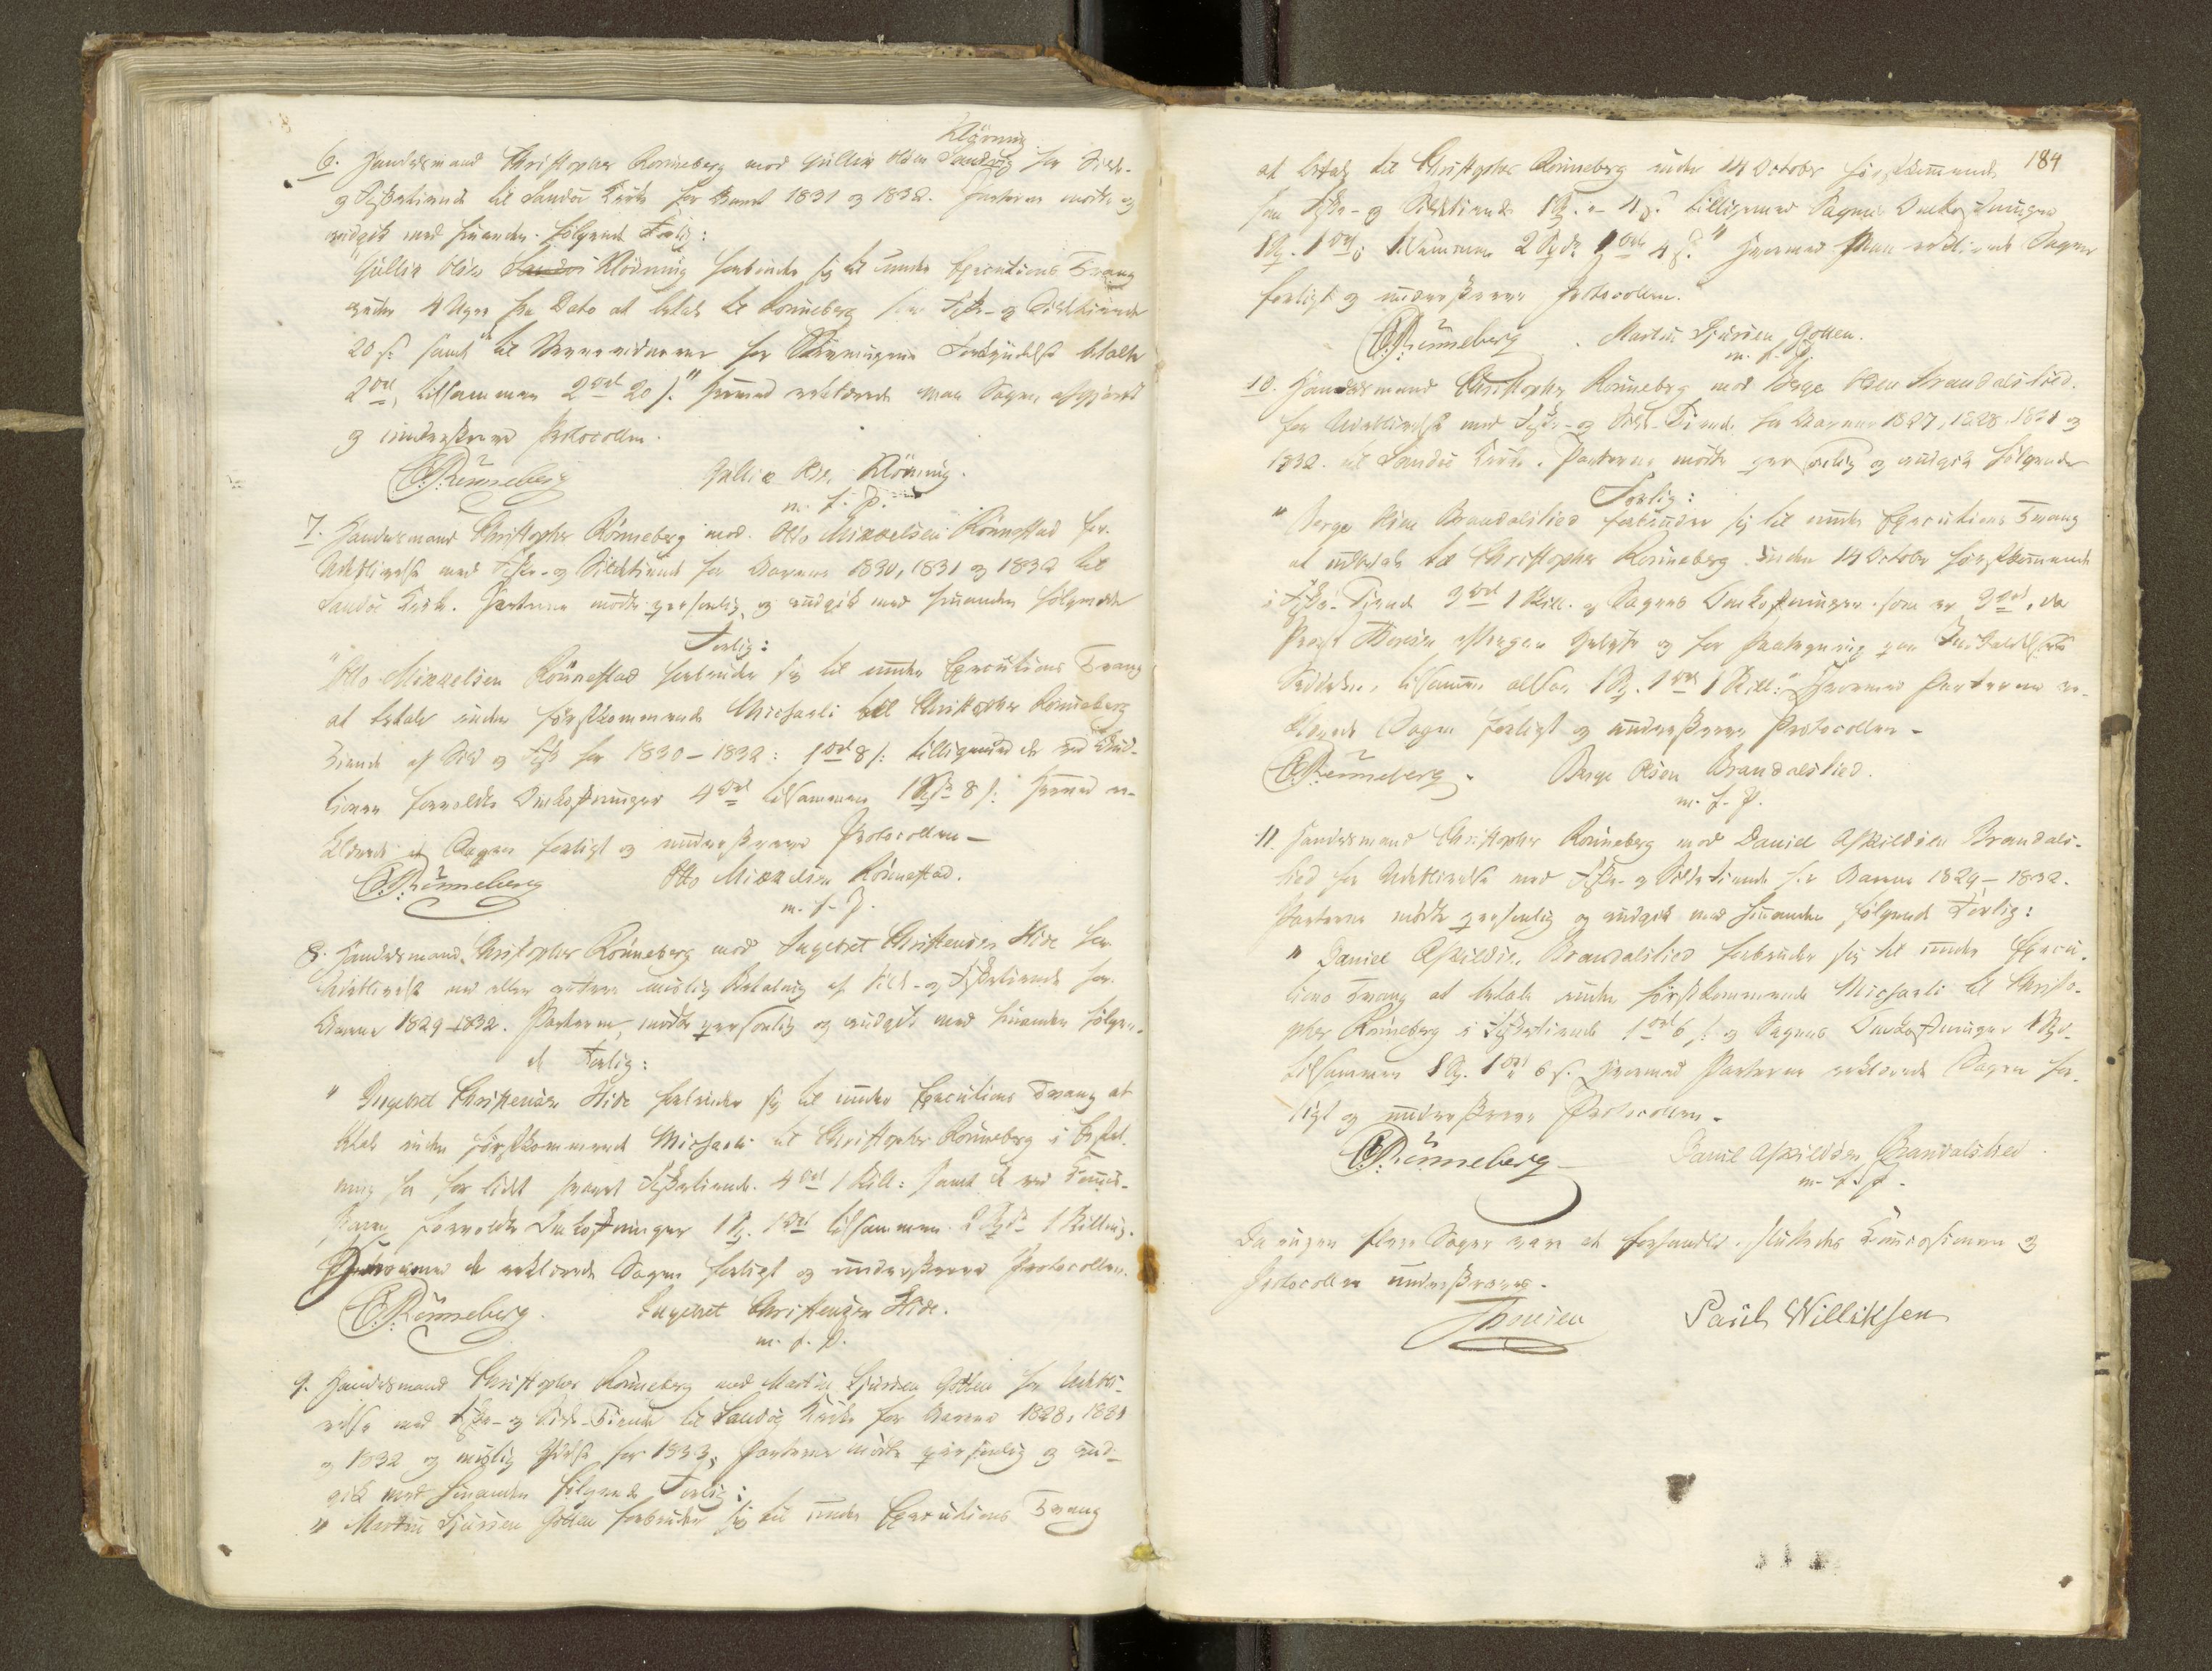 Klövning
6. Handelsmand Christopher Rönneberg mod Gullik Olsen Sandvig for Silde-
og Fiskertiende til Sandöe Kirke for Aaret 1831 og 1832. Parterne mødte og
indgik med hinanden følgende Forlig:
"Gullik Olsen Sandöi Klövning forbinder sig til under Executions Tvang
inden 4 Uger fra Dato at betale til Rönneberg for Fiske- og Sildetiende
20 s. samt til for betalte
2 ort, tilsammen 2 ort 20 s." Hermed erklærede man Sagen afgjort
og underskrev Protocollen.
C. Rönneberg Gullik Ols. Klövning.
m. f. P.
7. Handelsmand Christopher Rönneberg mod Otto Mikkelsen Rönnestad for
Udeblivelse med Fiske- og Sildetiende for Aarene 1830, 1831 og 1832 til
Sandöe Kirke. Parterne mødte personlig og indgik med hinanden følgende
Forlig:
"Otto Mikkelsen Rönnestad forbinder sig til under Executions Tvang
at betale inden førstkommende Michaeli til Christopher Rönneberg
Tiende af Sild og Fisk for 1830-1832: 1 ort 8 s: tilligemed de ved
forvoldte Omkostninger 4 ort tilsammen 1 Spd 8 s: Hermed er-
klærede Sagen forligt og underskreve Protocollen -
C. Rönneberg Otto Mikkelsen Rönnestad.
m. f. P.
8. Handelsmand Christopher Rönneberg mod Ingebret Christensen Hide for
Udeblivelse med eller mislig Betaling af Silde- og Fisketiende for
Aarene 1829-1832. Parterne mødte personlig og indgik med hinanden følgen-
de Forlig:
" Ingebret Christensen Hide forbinder sig til under Executions Tvang at
betale inden førstkommende Michaeli til Christopher Rönneberg i
for for lidt svaret Fisketiende 4 ort 1 Skill: samt de ved
forvoldte Omkostninger 1 Sp. 1 ort tilsammen 2 Spd 1 Skilling.
de erklærede Sagen forligt og underskreve Protocollen.
C. Rönneberg. Ingebret Christensen Hide.
m. f. P.
9. Handelsmand Christopher Rönneberg mod Martin Sjursen Gotten for Udebli-
velse med Fiske- og Silde-Tiende til Sandöe Kirke for Aarene 1828, 1831
og 1832 og mislig for 1833, Parterne mødte personlig og ind-
gik med hinanden følgende Forlig:
" Martin Sjursen Gotten forbinder sig til under Executions Tvang
184
at betale til Christopher Rönneberg inden 14 October førstkommende
for Fiske- og Sildetiende 1 Sp. - 4 s. tilligemed Sagens Omkostninger
1 Sp. 1 ort; tilsammen 2 Spd 1 ort 4 s." Hvormed man erklærede Sagen
forligt og underskreve Protocollen.
C. Rönneberg. Martin Sjursen Gotten.
m. f. P.
10. Handelsmand Christopher Rönneberg mod Børge Olsen Brandalslied.
for Udeblivelse med Fiske- og Silde-Tiende for Aarene 1827, 1828, 1831 og
1832 til Sandöe Kirke. Parterne mødte personlig og indgik følgende
Forlig:
" Børge Olsen Brandalslied forbinder sig til under Executions Tvang
at udbetale til Christopher Rönneberg inden 14 October førstkommende
i Fiske-Tiende 3 ort 1 Skill. og Sagens Omkostninger som er 3 ort, da
og for paa Indkaldelses
Sedlen, tilsammen altsaa 1 Sp. 1 ort 1 Skill:" Hvormed Parterne er-
klærede Sagen forligt og underskreve Protocollen -
C. Rönneberg. Børge Olsen Brandalslied.
m. f. P.
11. Handelsmand Christopher Rönneberg mod Daniel Askildsen Brandals-
lied for Udeblivelse med Fiske- og Sildetiende for Aarene 1829-1832.
Parterne mødte personlig og indgik med hinanden følgende Forlig:
" Daniel Askildsen Brandalslied forbinder sig til under Execu-
tions Tvang at betale inden førstkommende Michaeli til Christo-
pher Rönneberg i Fisketiende 1 ort 6 s. og Sagens Omkostninger 1 Spd.
tilsammen 1 Sp. 1 ort 6 s. Hvormed Parterne erklærede Sagen for-
ligt og underskreve Protocollen.
C. Rönneberg - Daniel Askildsen Brandalslied.
m. f. P.
Da ingen flere Sager vare at forhandle, sluttedes Commissionen og
Protocollen underskreves.
Thomsen Paul Williksen